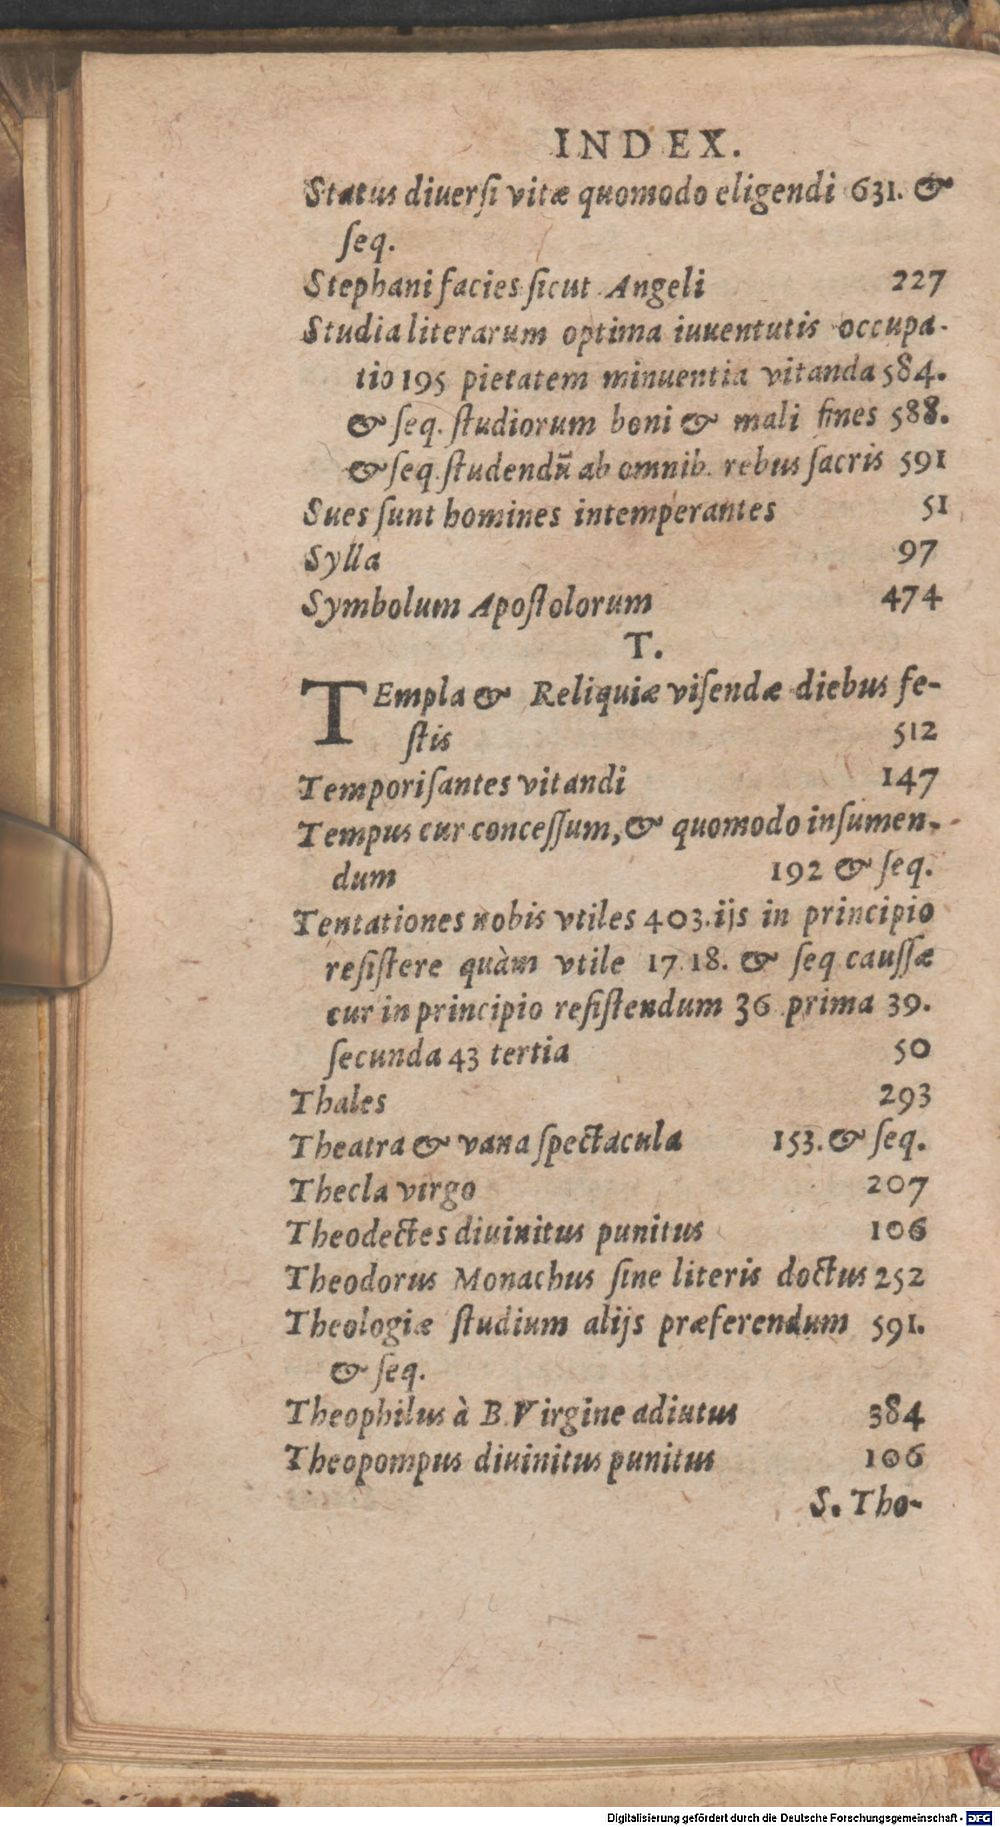 INDEX.
Status diuersi vitæ quomodo eligendi 631. &
seq.
Stephani facies sicut Angeli 227
Studia literarum optima iuuentutis occupa-
tio 195 pietatem minuentia vitanda 584.
& seq. studiorum boni & mali fines 588.
& seq. studendũ ab omnib. rebus sacris 591
Sues sunt homines intemperantes 51
Sylla 97
Symbolum Apostolorum 474
T.
TEmpla & Reliquiæ visendæ diebus fe-
stis 512
Temporisantes vitandi 147
Tempus cur concessum, & quomodo insumen-
dum 192 & seq.
Tentationes nobis vtiles 403. ijs in principio
resistere quàm vtile 17. 18. & seq caussæ
cur in principio resistendum 36 prima 39.
secunda 43 tertia 50
Thales 293
Theatra & vana spectacula 153. & seq.
Thecla virgo 207
Theodectes diuinitus punitus 106
Theodorus Monachus sine literis doctus 252
Theologiæ studium alijs præferendum 591.
& seq.
Theophilus à B. Virgine adiutus 384
Theopompus diuinitus punitus 106
S. Tho-
Digitalisierung gefördert durch die Deutsche Forschungsgemeinschaft - DFG